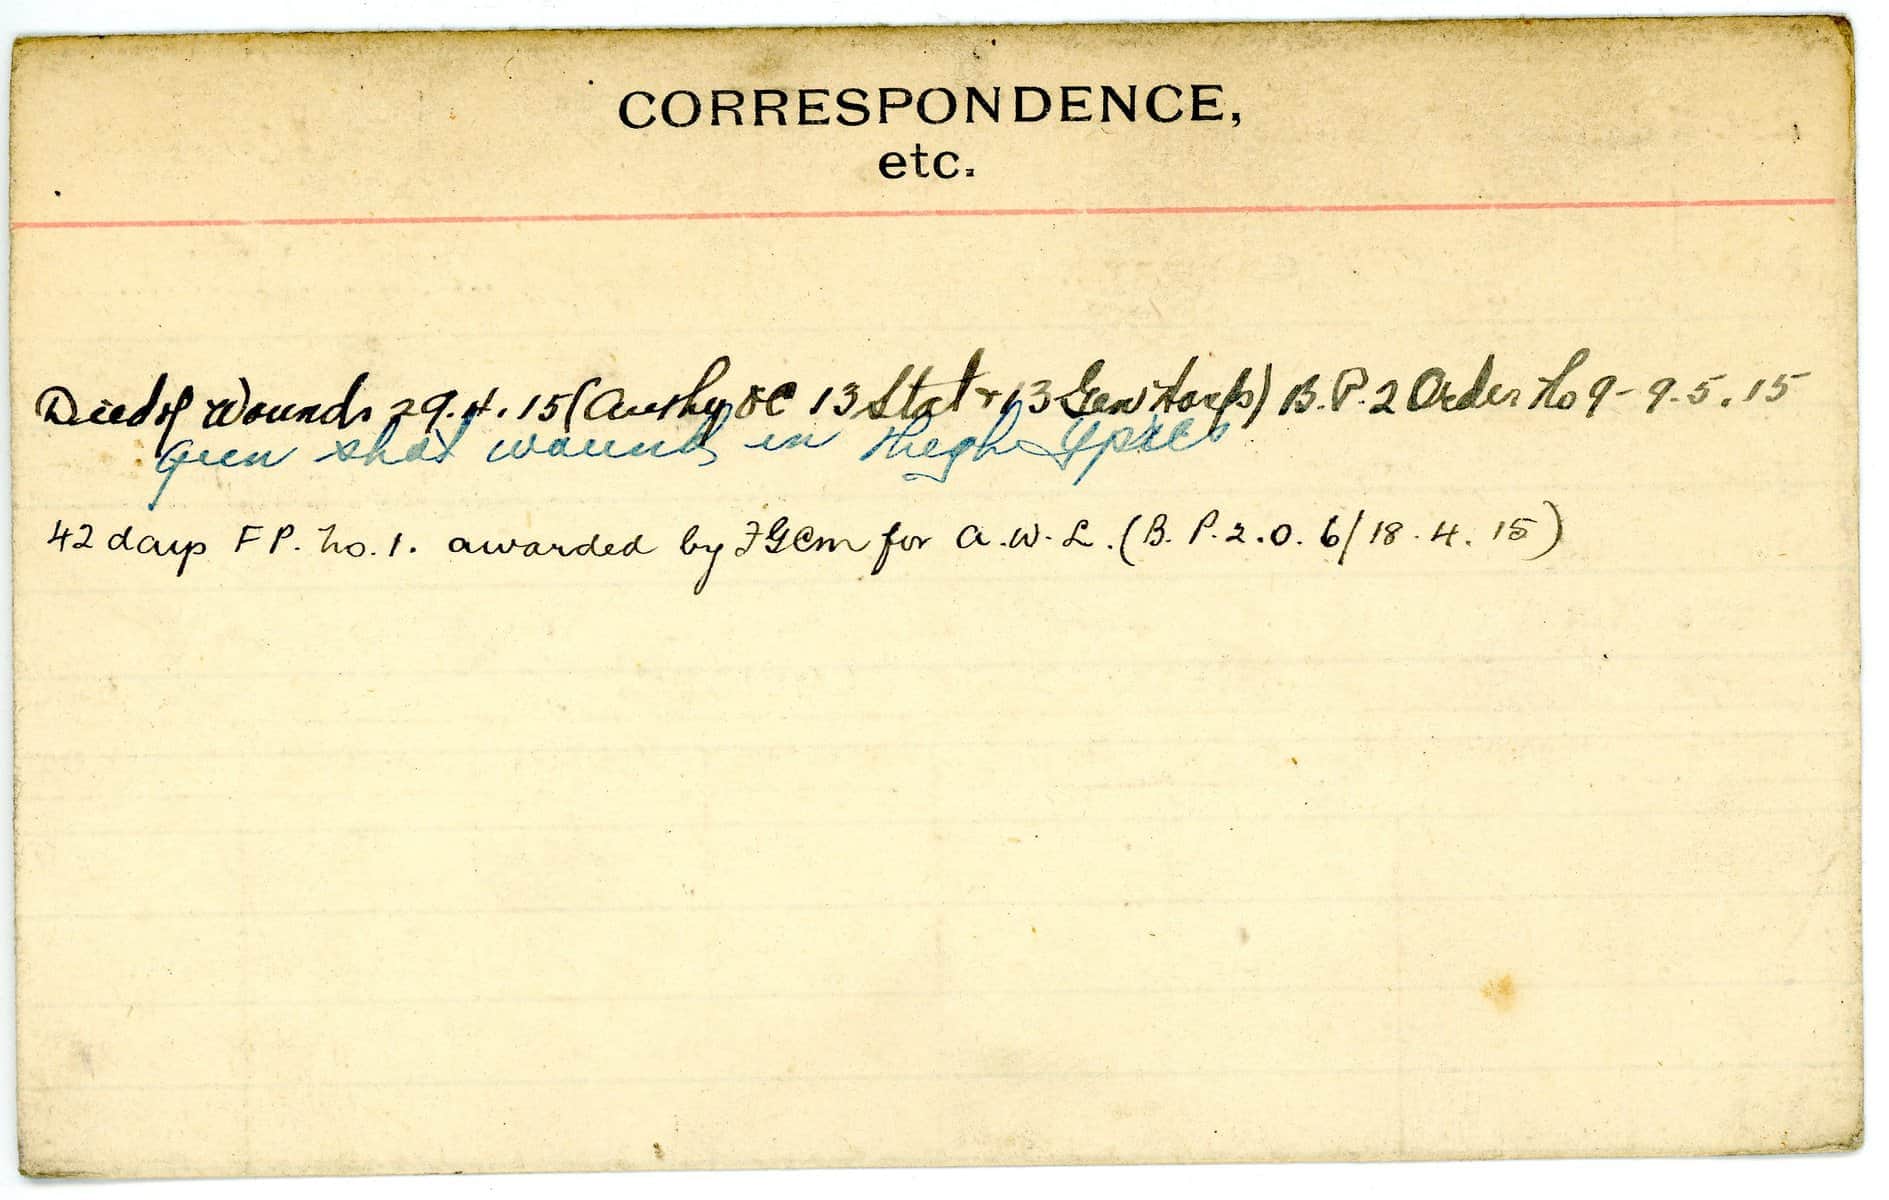 CORRESPONDENCE,
etc.
Died of Wounds 29.4.15 (Authy OC 13 Stat & 13 Gen Hosps) B.P. 2 Order No 9 - 9.5.15
Gun shot wound in thigh Ypres
42 days F P. No. 1. awarded by FGCM for A.W.L. (B.P.2.O. 6/18.4.15)